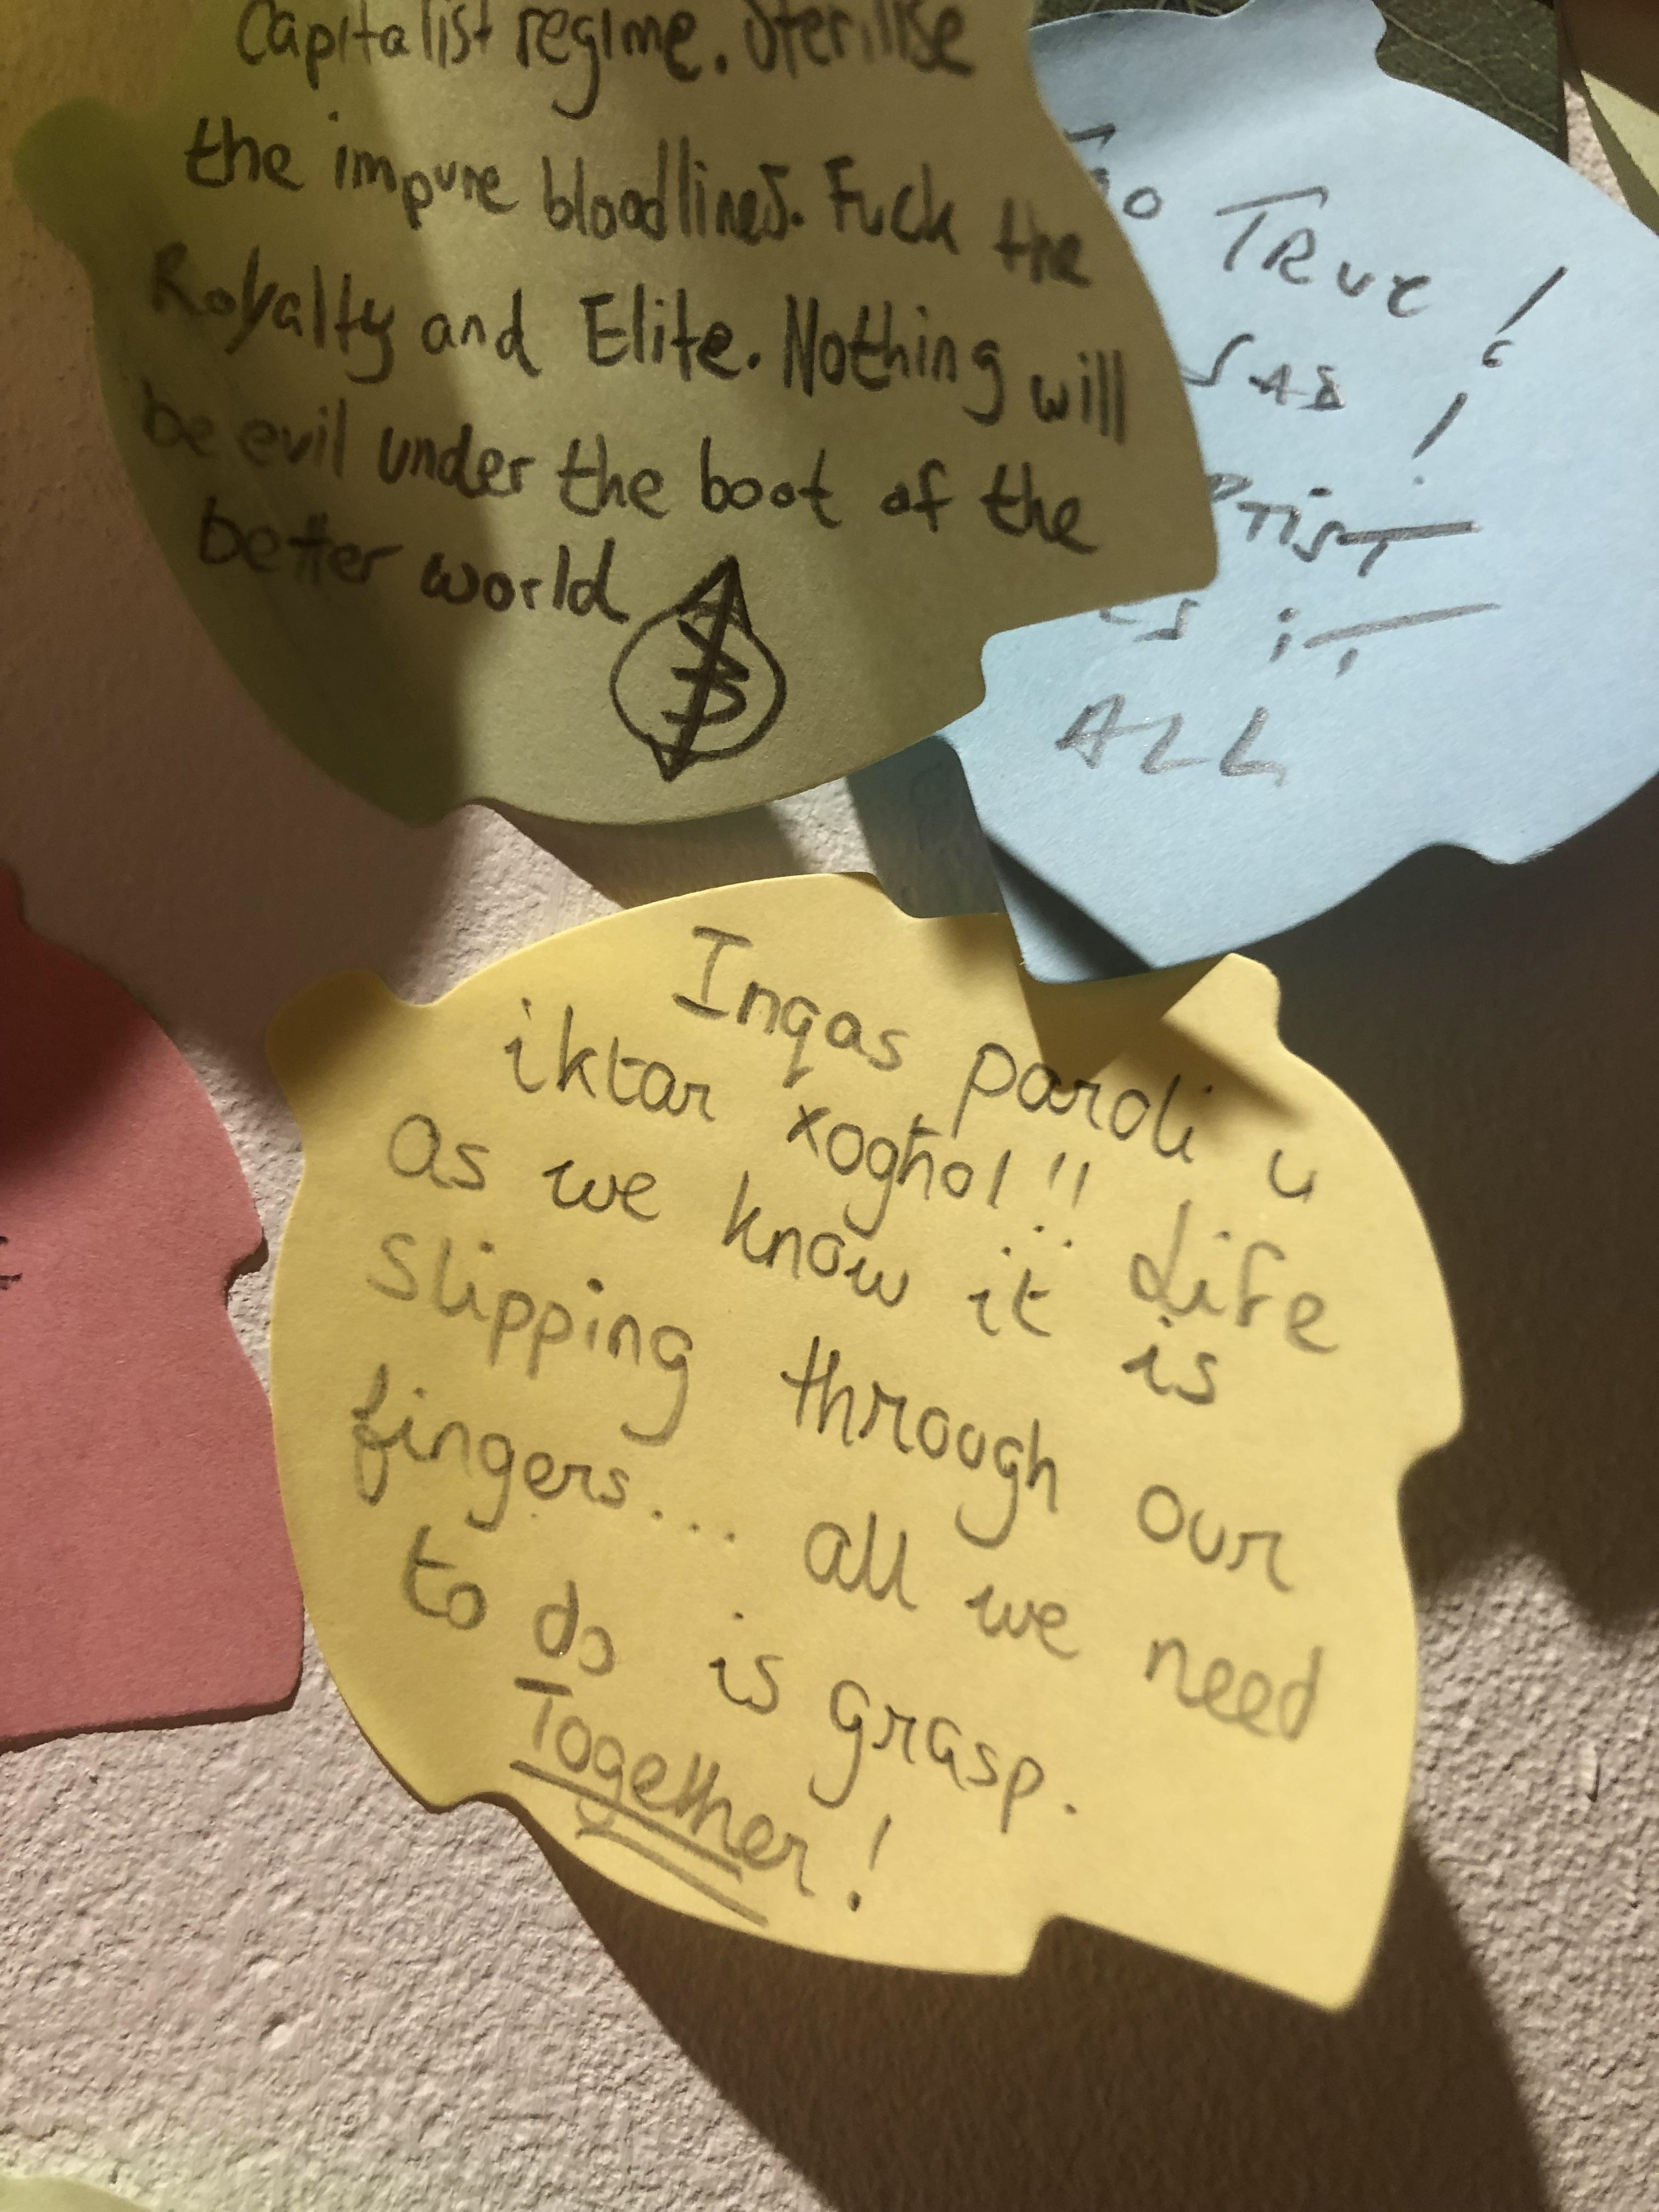 Capitalist regime. Sterilise
the impure bloodlines. Fuck the
Royalty and Elite. Nothing will
be evil under the boot of the
better world
TRUE!
SAD!
iT
ALL
Inqas paroli u
iktar xogħol!! Life
as we know it is
slipping through our
fingers... all we need
to do is grasp.
Together!